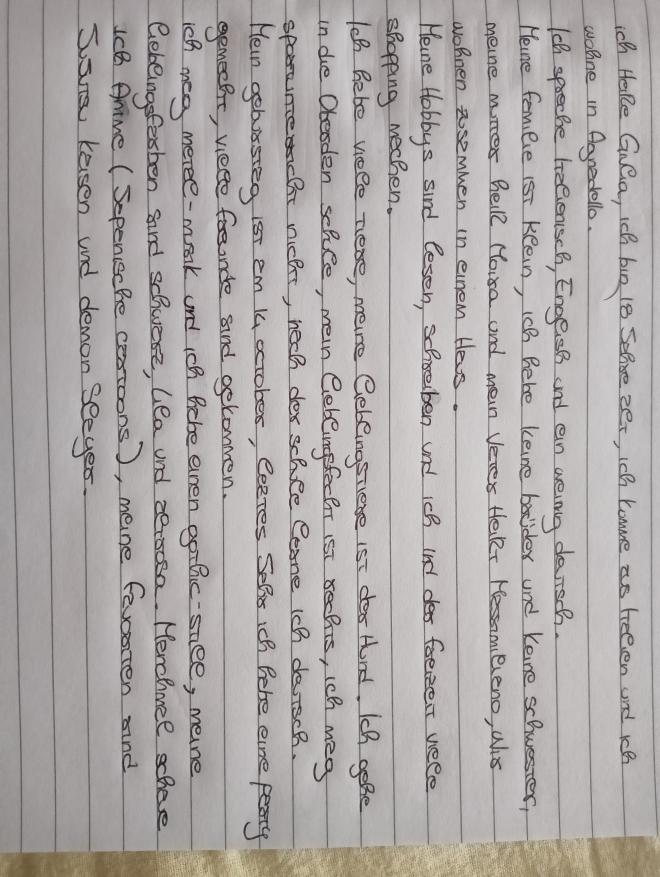 ich Heiße Giulia, ich bin 18 Jahre alt, ich komme aus Italien und ich
wohne in Agnadello.
Ich spreche Italienisch, English und ein wenig deutsch.
Meine familie ist klein, ich habe keine brüder und keine schwester,
meine mutter heißt Moira und mein Vater Heißt Massimiliano, wir
wohnen zusammen in einem Haus.
Meine Hobbys sind lesen, schreiben und ich in der freizeit viele
shopping machen.
Ich habe viele Tiere, meine Lieblingstiere ist der Hund. Ich gehe
in die Oberden schule, mein Lieblingsfacht ist rechts, ich mag
sportunterricht nicht, nach der schule lerne ich deutsch.
Mein geburstag ist am 14 october, leztes Jahr ich habe eine party
gemacht, viele freunde sind gekommen.
ich mag metal-musik und ich liebe einen gothic-stile, meine
Lieblingsfarben sind schwarz, lila und altrosa. Manchmal schaue
ich Anime (Japanische cartoons), meine favoriten sind
JuJutsu kaisen und demon Slayer.